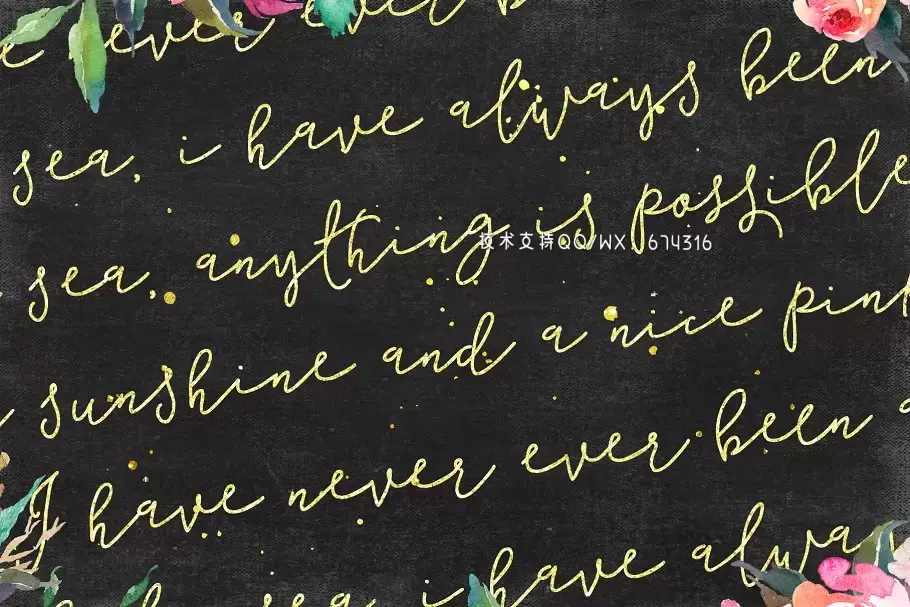 ever ever b
sea, i have always been
sea, anything is possible
技术支持QQ/WX：674316
sunshine and a nice pink
I have never ever been a
sea i have alwa